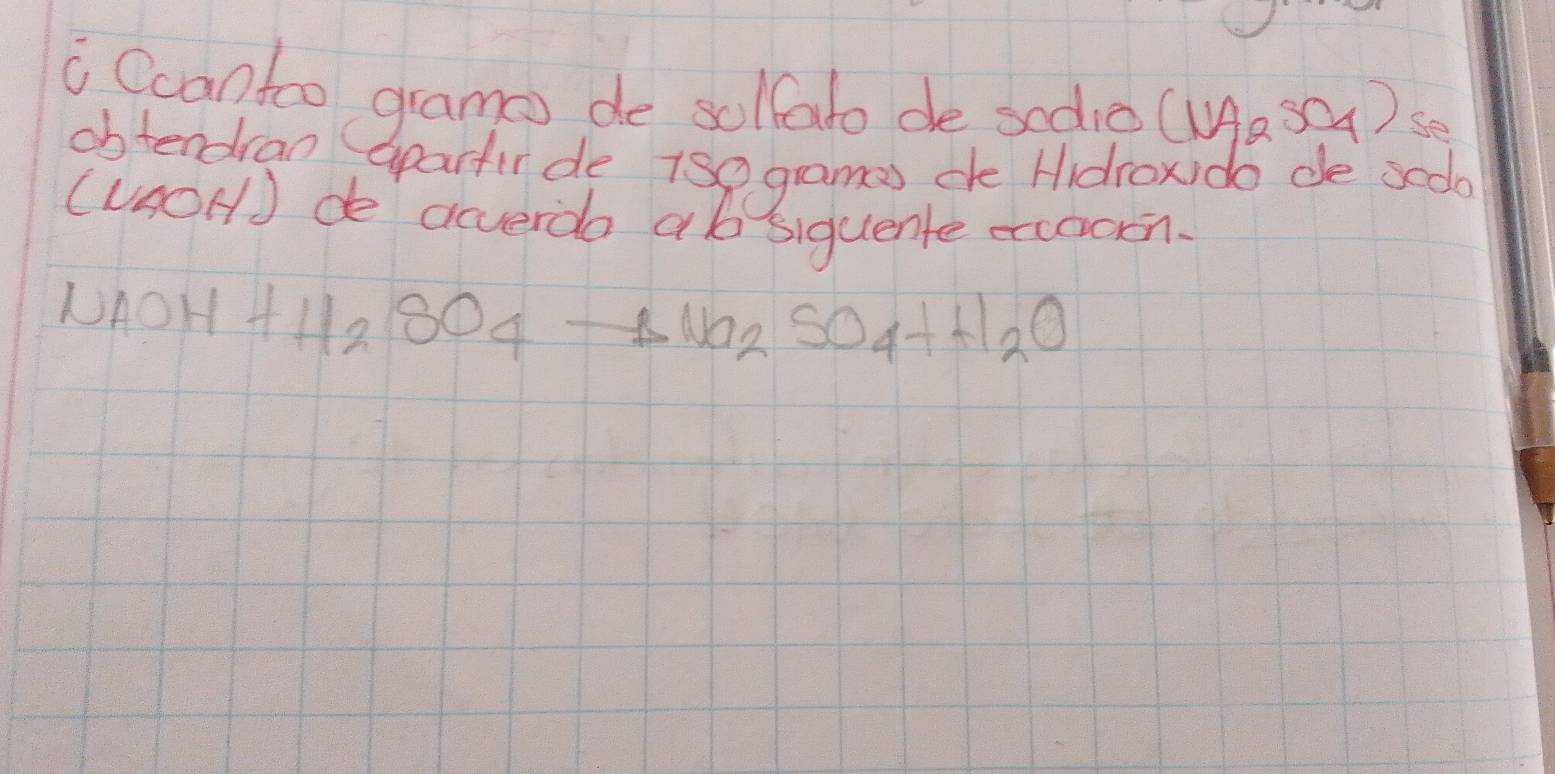 ¿Ccantoo gramos de sulfato de sodio (NA2SO4) se
obtendran apartir de 750 gramos de Hidroxido de sodo
(NAOH) de acuerdo a la siguente ecuacion.
NAOH + H2SO4 → Na2SO4 + H2O